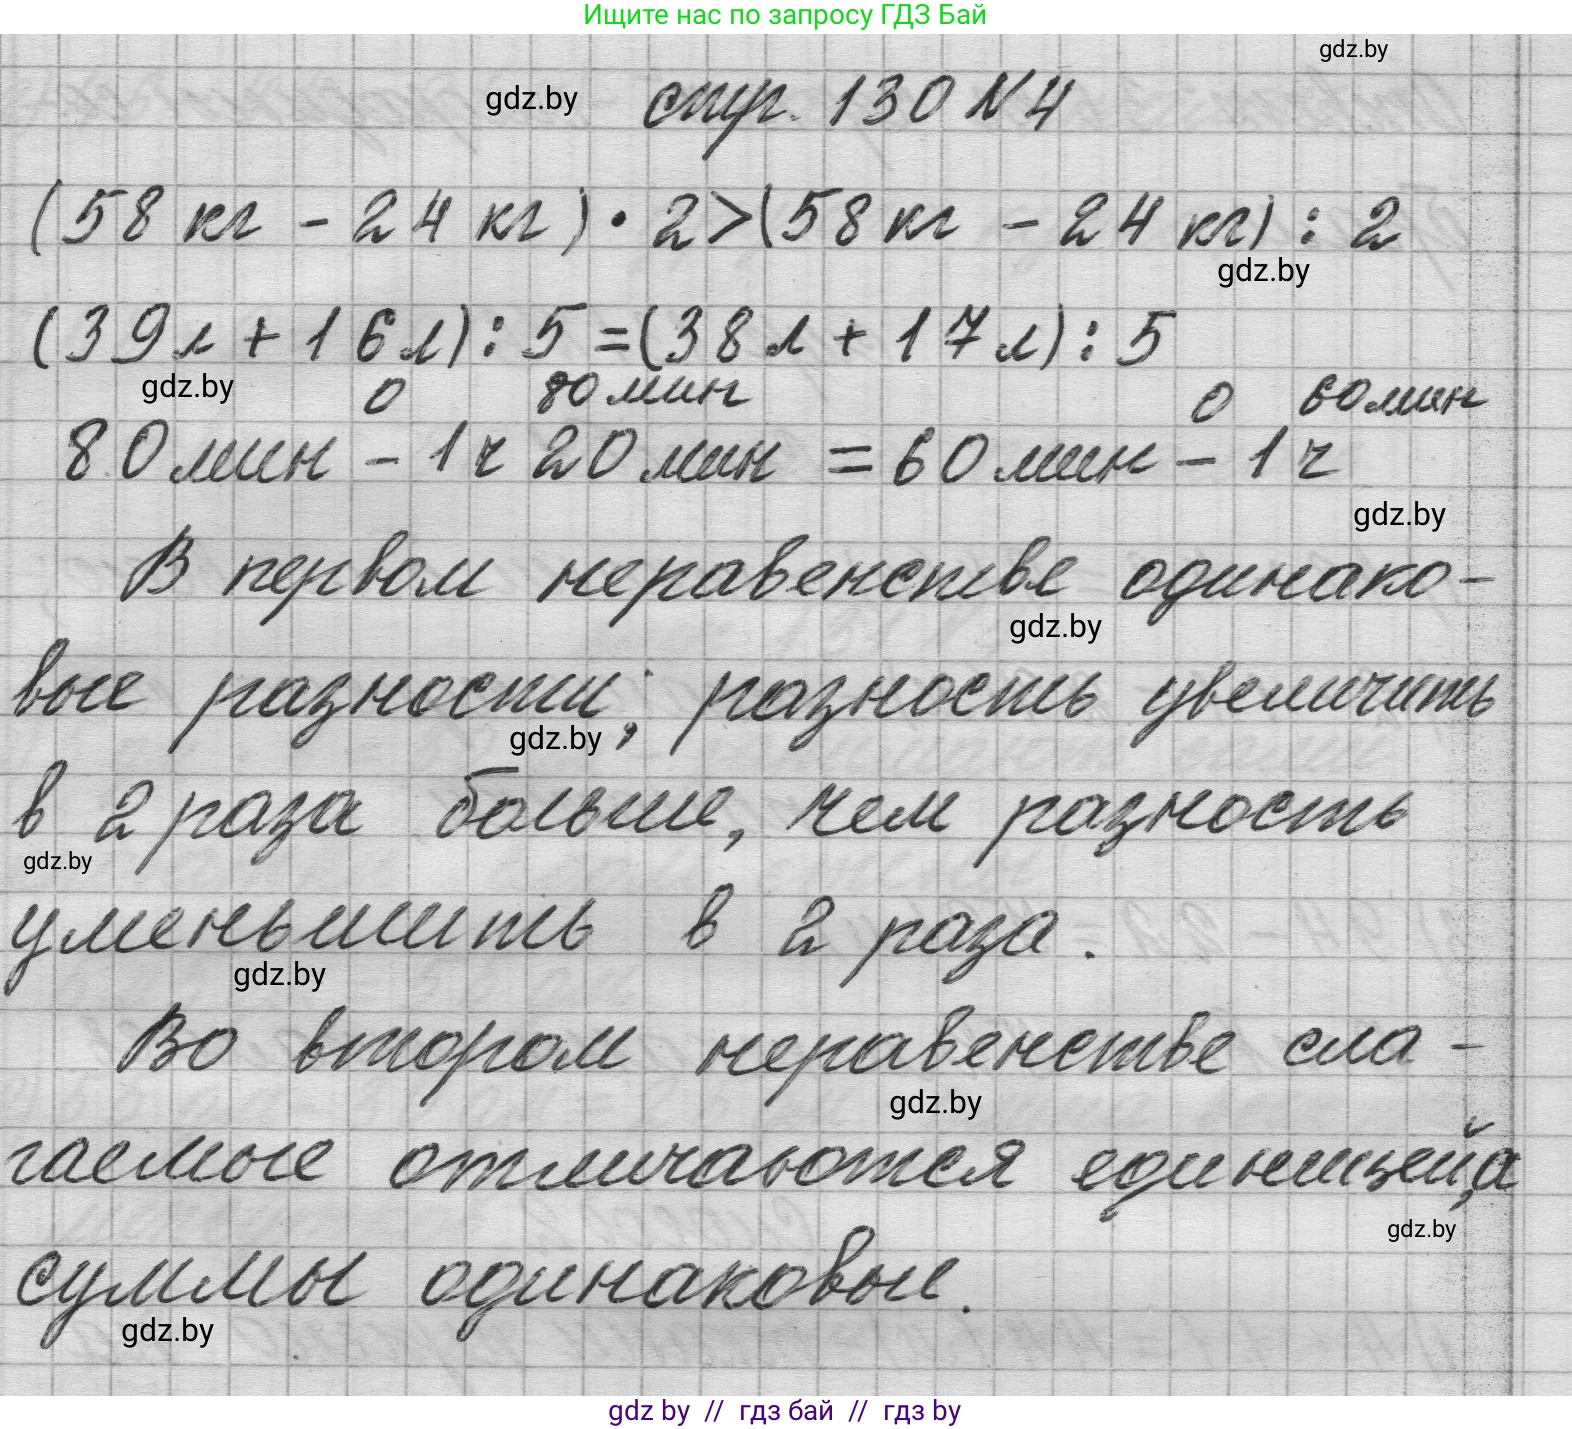 Ищите нас по запросу ГДЗ Бай
gdz.by
gdz.by стр. 130 N 4
(58 кг - 24 кг) · 2>(58 кг - 24 кг) : 2
gdz.by
(39л + 16л) : 5 =(38л + 17л) : 5
gdz.by 0 80мин 0 60мин
80мин - 1ч 20мин = 60мин - 1ч
gdz.by
В первом неравенстве одинако-
gdz.by
вые разности; разность увеличить
gdz.by
в 2 раза больше, чем разность
gdz.by
уменьшить в 2 раза.
gdz.by
Во втором неравенстве сла-
gdz.by
гаемые отличаются единицей,а
gdz.by
суммы одинаковые.
gdz.by
gdz by // гдз бай // гдз by